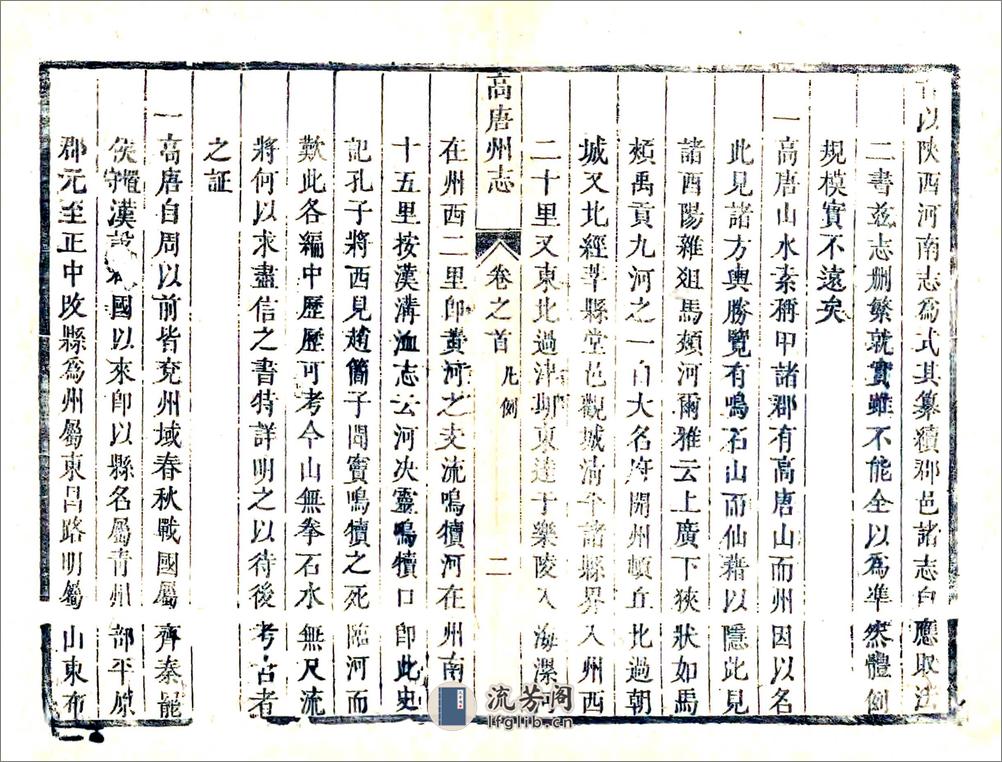 以陝西河南志爲式其纂續郡邑諸志自應取法
二書兹志刪繁就實雖不能全以爲準然體例
規模實不遠矣
一高唐山水素稱甲諸郡有高唐山而州因以名
此見諸方輿勝覽有鳴石山而仙藉以隱此見
諸酉陽雜俎馬頰河爾雅云上廣下狹狀如馬
頰禹貢九河之一自大名府開州頓丘北過朝
城又北經莘縣堂邑觀城淸平諸縣界入州西
二十里又東北過津期東達于樂陵入海漯河
高唐州志
卷之首
凡例
二
在州西二里卽黃河之支流鳴犢河在州南
十五里按漢溝洫志云河决靈鳴犢口卽此史
記孔子將西見趙簡子聞竇鳴犢之死臨河而
歎此各編中歷歷可考今山無拳石水無尺流
將何以求盡信之書特詳明之以待後考古者
之証
一高唐自周以前皆兖州域春秋戰國屬齊秦罷
侯置守漢國以來卽以縣名屬青州部平原
郡元至正中改縣爲州屬東昌路明屬山東布
流芳阁
lfglib.cn